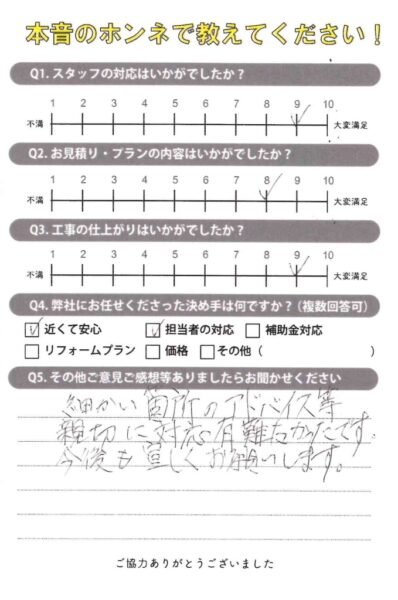 本音のホンネで教えてください！
Q1. スタッフの対応はいかがでしたか？
1 2 3 4 5 6 7 8 9 10
不満 大変満足
Q2. お見積り・プランの内容はいかがでしたか？
1 2 3 4 5 6 7 8 9 10
不満 大変満足
Q3. 工事の仕上がりはいかがでしたか？
1 2 3 4 5 6 7 8 9 10
不満 大変満足
Q4. 弊社にお任せくださった決め手は何ですか？（複数回答可）
☑ 近くて安心 ☑ 担当者の対応 □ 補助金対応
□ リフォームプラン □ 価格 □ その他（ ）
Q5. その他ご意見ご感想等ありましたらお聞かせください
細かい箇所のアドバイス等
親切に対応有難たかったです。
今後も宜しくお願いします。
ご協力ありがとうございました